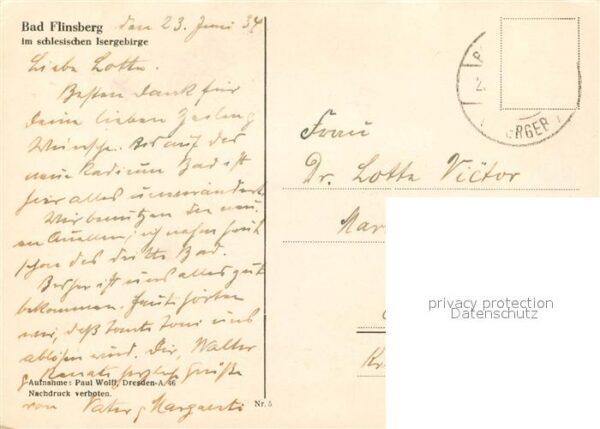 Bad Flinsberg den 23. Juni 34
im schlesischen Isergebirge
Liebe Lotte.
Besten Dank für
deine lieben Zeilen
Wünsche. Bis auf das
neue Radium Bad ist
hier alles unverändert
Wir benutzen die neu-
en Quellen, ich nahm heut
schon das dritte Bad.
Bisher ist uns alles gut
bekommen. Heute hörten
wir, daß Tante Toni uns
ablösen wird. Dir, Walter
Renate herzlich Grüße
Aufnahme: Paul Wolff, Dresden-A. 46
Nachdruck verboten.
von Vater, Margarete
Nr. 5
Frau
Dr. Lotte Victor
Mar
Kr
ERGEB
privacy protection
Datenschutz